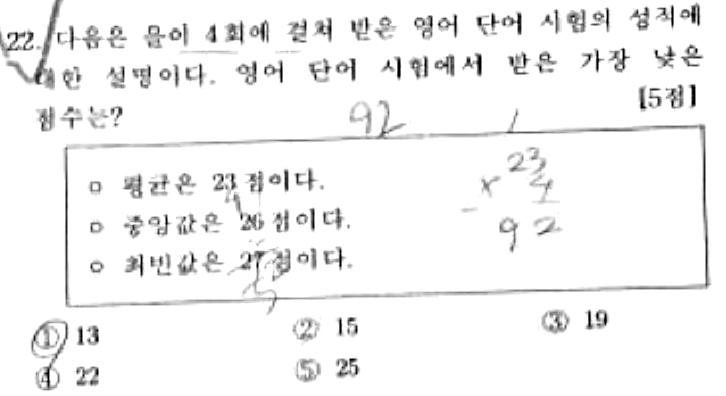 22. 다음은 물이 4회에 걸쳐 받은 영어 단어 시험의 성적에
대한 설명이다. 영어 단어 시험에서 받은 가장 낮은
점수는?
[5점]
92
○ 평균은 23점이다.
○ 중앙값은 26점이다.
○ 최빈값은 27점이다.
1
23
× 4
92
① 13 ② 15 ③ 19
④ 22 ⑤ 25